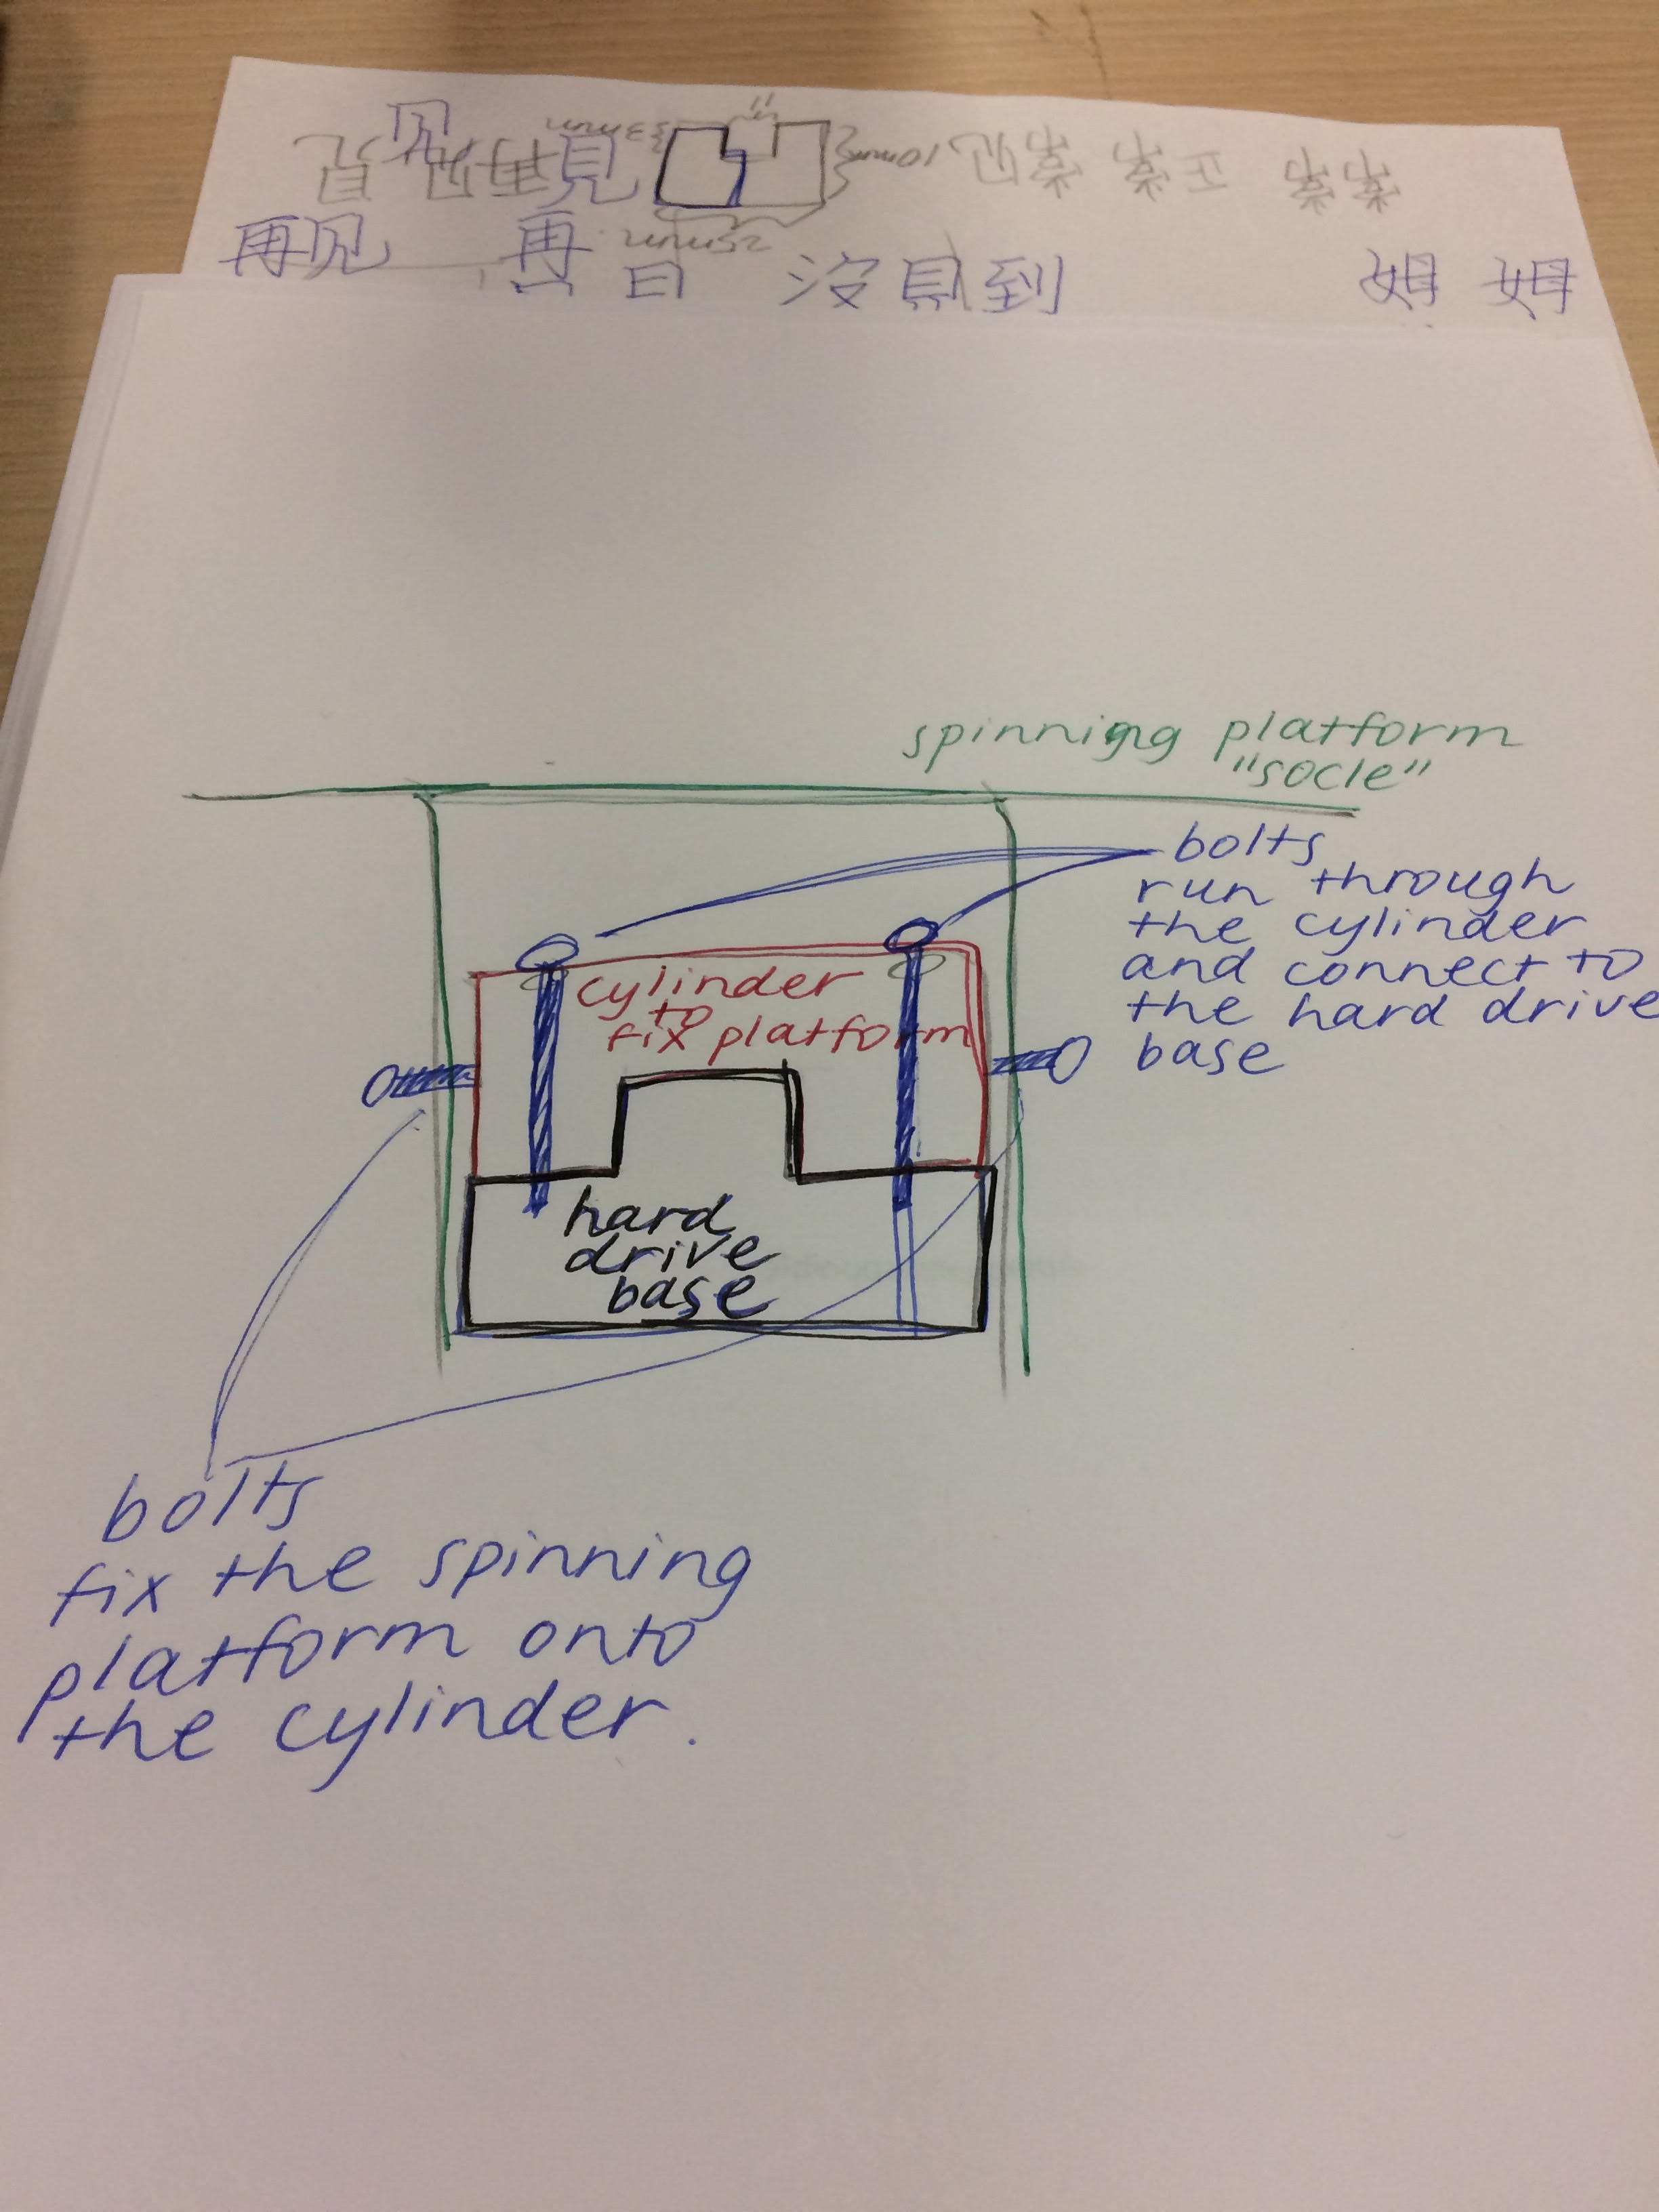 再见 再 日 沒見到 姆 姆
25mm
10mm
3mm
spinning platform
"socle"
bolts
run through
the cylinder
and connect to
the hard drive
base
cylinder
to
fix platform
hard
drive
base
bolts
fix the spinning
platform onto
the cylinder.